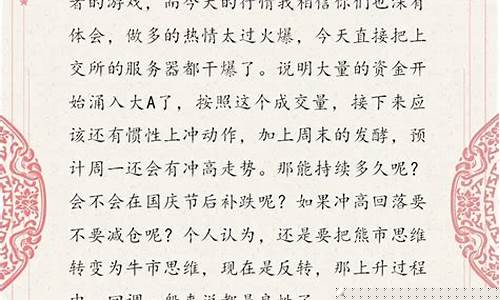 者的游戏，而今天的行情我相信你们也深有
体会，做多的热情太过火爆，今天直接把上
交所的服务器都干爆了。说明大量的资金开
始涌入大A了，按照这个成交量，接下来应
该还有惯性上冲动作，加上周末的发酵，预
计周一还会有冲高走势。那能持续多久呢？
会不会在国庆节后补跌呢？如果冲高回落要
不要减仓呢？个人认为，还是要把熊市思维
转变为牛市思维，现在是反转，那上升过程
中，回调一般来说都是良性了